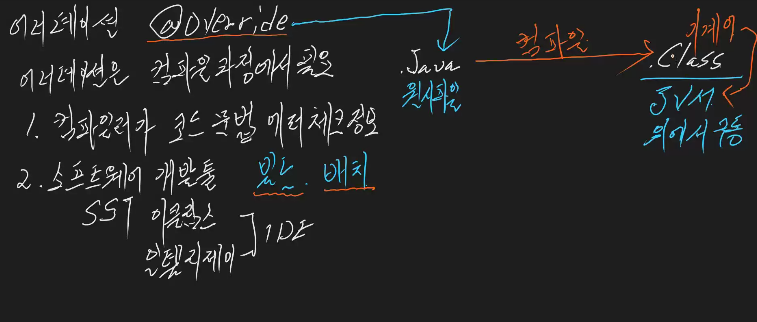 어노테이션 @Override
어노테이션은 컴파일과정에서 필요
1. 컴파일러가 코드 문법 에러체크정보
2. 소프트웨어 개발툴 빌드. 배치
SST 이클립스
인텔리제이
IDE
.Java
원시파일
컴파일
기계어
.Class
JVM
위에서 구동